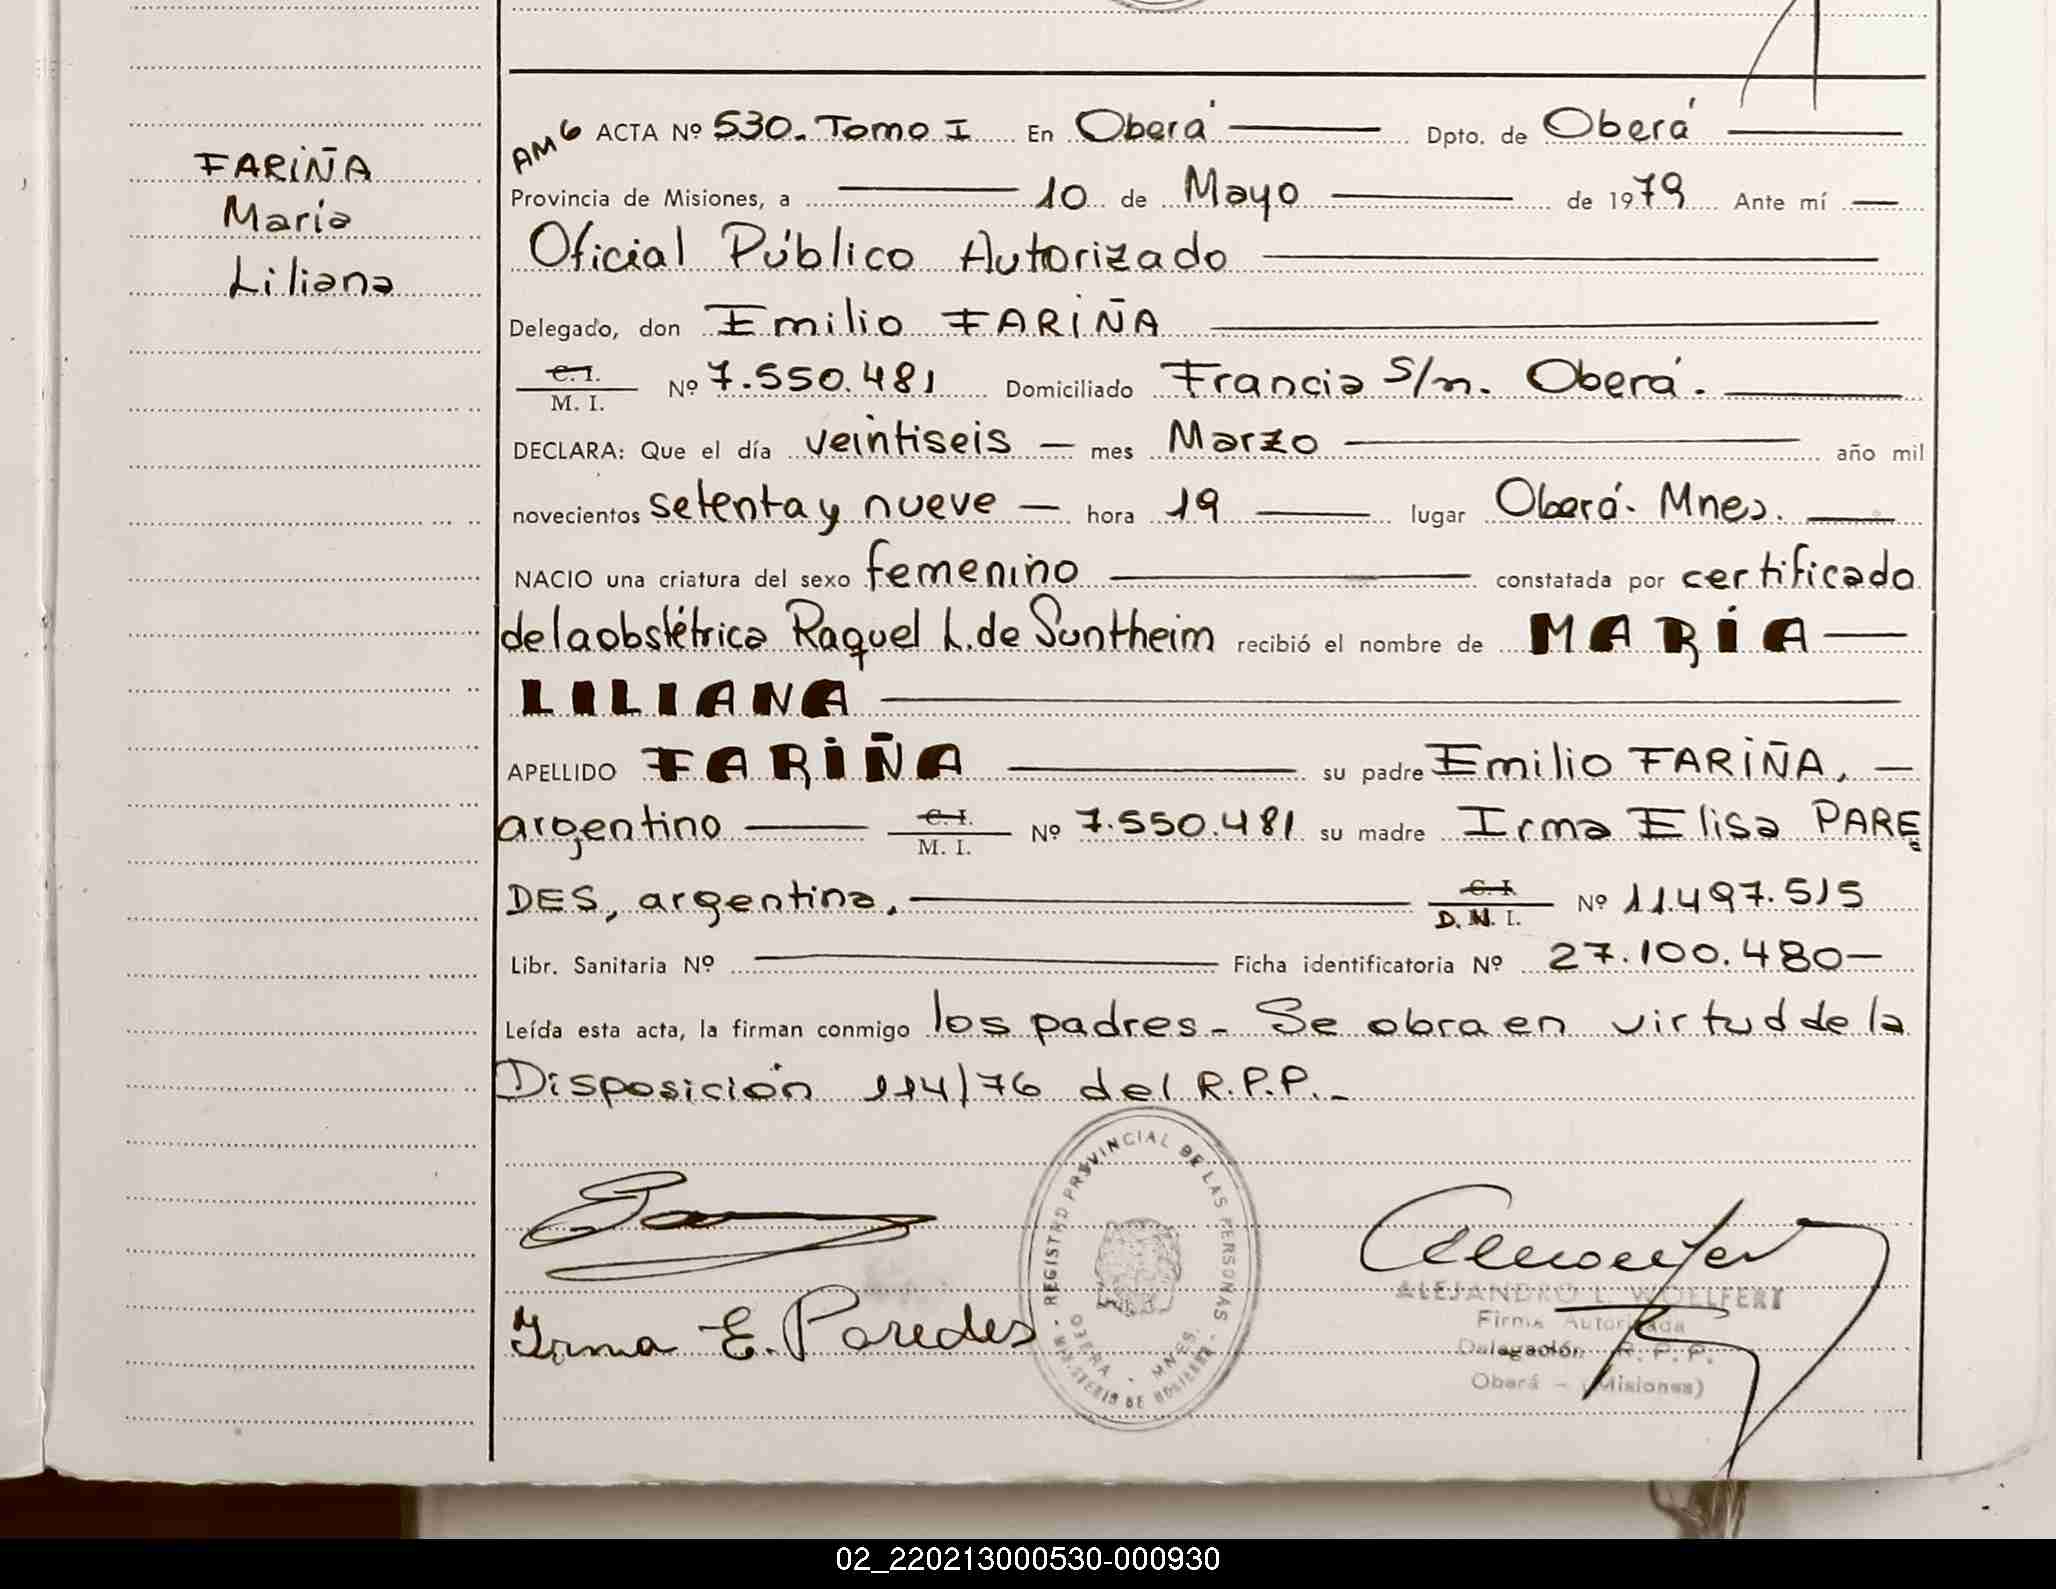 FARIÑA
María
Liliana
AM6 ACTA Nº 530. Tomo I En Oberá Dpto. de Oberá
Provincia de Misiones, a 10 de Mayo de 1979 Ante mí
Oficial Público Autorizado
Delegado, don Emilio FARIÑA
C. I.
M. I. Nº 7.550.481 Domiciliado Francia S/n. Oberá.
DECLARA: Que el día veintiseis mes Marzo año mil
novecientos setenta y nueve hora 19 lugar Oberá. Mnes.
NACIO una criatura del sexo femenino constatada por certificado
de la obstétrica Raquel L. de Suntheim recibió el nombre de MARÍA
LILIANA
APELLIDO FARIÑA su padre Emilio FARIÑA,
argentino C. I. M. I. Nº 7.550.481 su madre Irma Elisa PARE
DES, argentina. C. I. D.N.I. Nº 11.497.515
Libr. Sanitaria Nº Ficha identificatoria Nº 27.100.480
Leída esta acta, la firman conmigo los padres. Se obra en virtud de la
Disposición 114/76 del R.P.P.
REGISTRO PROVINCIAL DE LAS PERSONAS
OBERA - MNES.
MINISTERIO DE GOBIERNO
Irma E. Paredes
ALEJANDRO L. WOELFERT
Firma Autorizada
Delegación R. P. P.
Oberá - (Misiones)
02_220213000530-000930